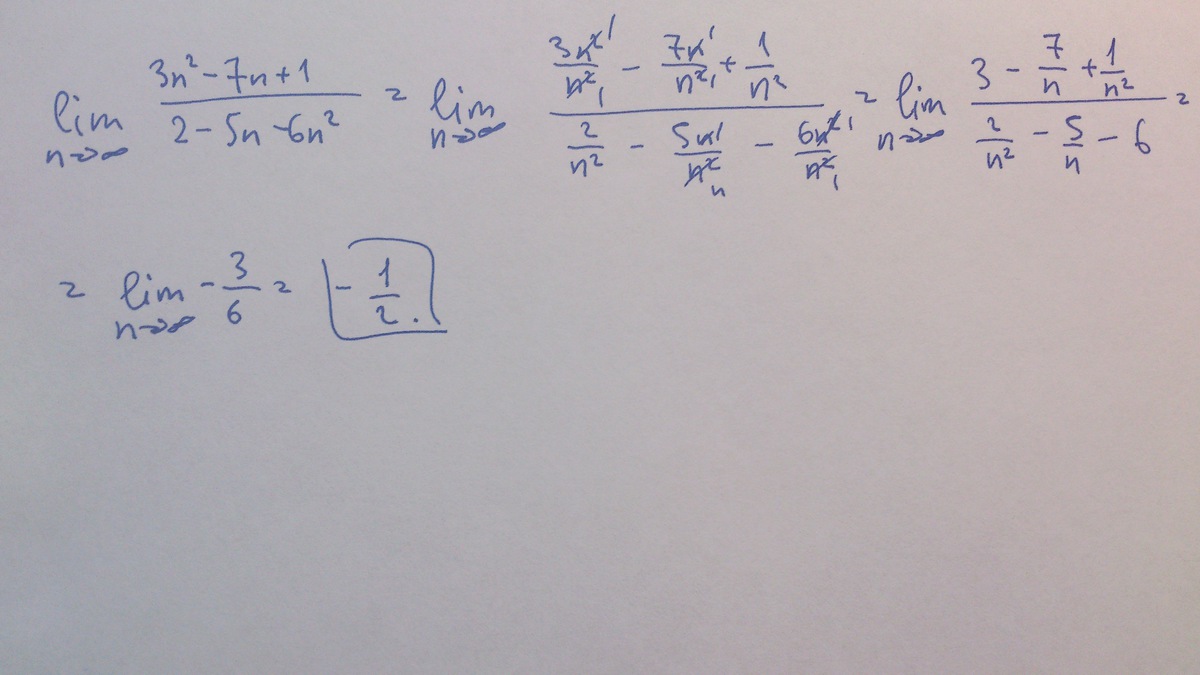 lim n→∞ (3n² - 7n + 1)/(2 - 5n - 6n²) = lim n→∞ (3n²/n² - 7n/n² + 1/n²)/(2/n² - 5n/n² - 6n²/n²) = lim n→∞ (3 - 7/n + 1/n²)/(2/n² - 5/n - 6) =
= lim n→∞ - 3/6 = - 1/2.